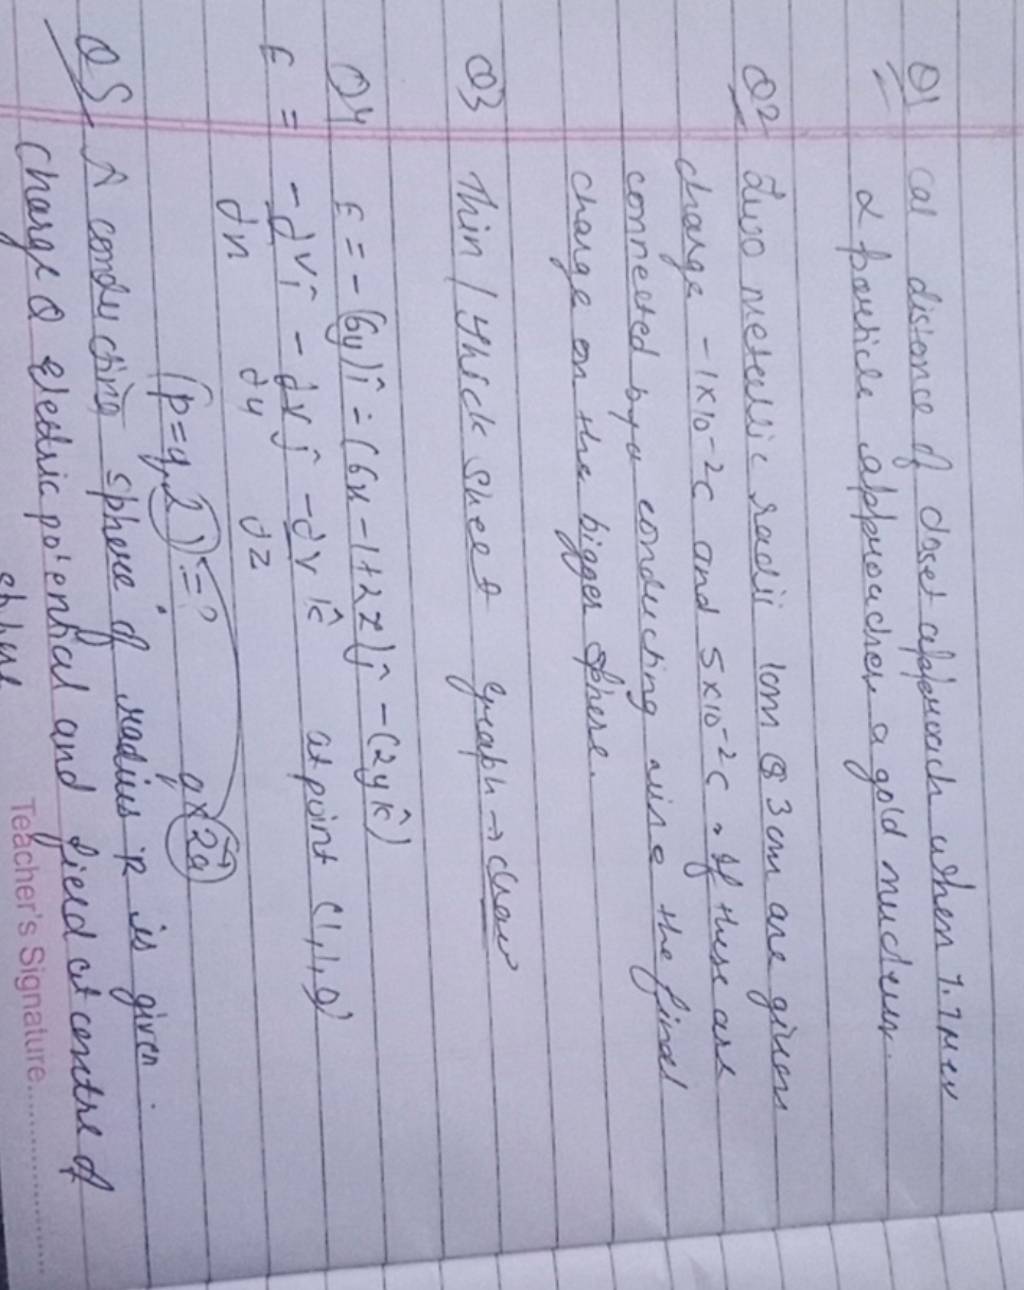 Q1 Cal distance of closet approach when 7.7 Mev
α particle approaches a gold nucleus.
Q2 Two metallic radii 1cm & 3cm are given
charge -1×10⁻²C and 5×10⁻²C. If these are
connected by a conducting wire the final
charge on the bigger sphere.
Q3 Thin/Thick Sheet graph → draw
Q4 E = -(6y)î - (6x-1+2z)ĵ - (2yk̂)
E = -dvî - dvĵ - dv k̂ at point (1,1,0)
dx dy dz
(p=q.2l)=? q×2a
Q5 A conducting sphere of radius 'R' is given.
Charge Q electric potential and field at centre of
Teacher's Signature